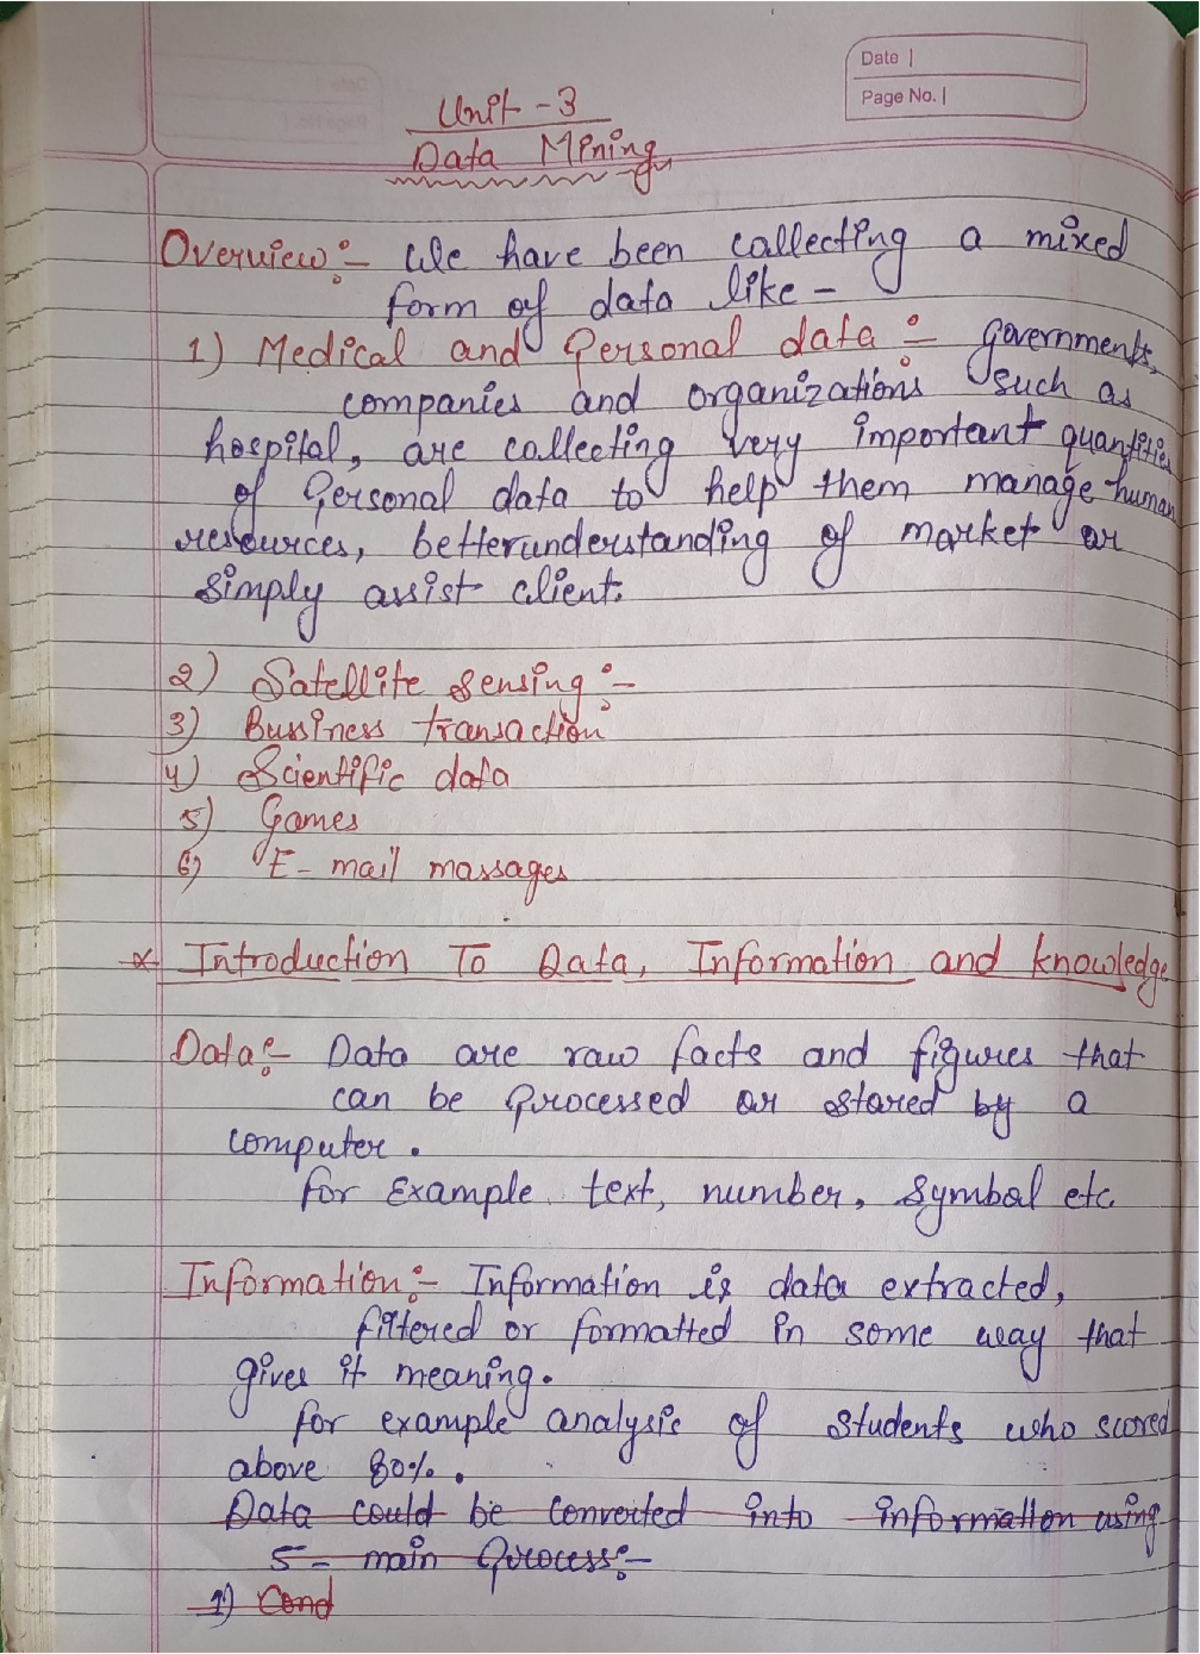 Date
Page No.
Unit - 3
Data Mining
Overview :- We have been collecting a mixed
form of data like -
1) Medical and Personal data :- Governments,
companies and organizations such as
hospital, are collecting very important quantities
of Personal data to help them manage human
resources, betterunderstanding of market or
simply assist client.
2) Satellite sensing :-
3) Bussiness transaction
4) Scientific data
5) Games
6) E-mail massages
* Introduction To Data, Information and knowledge
Data :- Data are raw facts and figures that
can be Processed or stored by a
computer.
for Example text, number, symbol etc.
Information :- Information is data extracted,
filtered or formatted in some way that
gives it meaning.
for example analysis of students who scored
above 80%.
Data could be converted into information using
5 - main Process :-
1) Cond